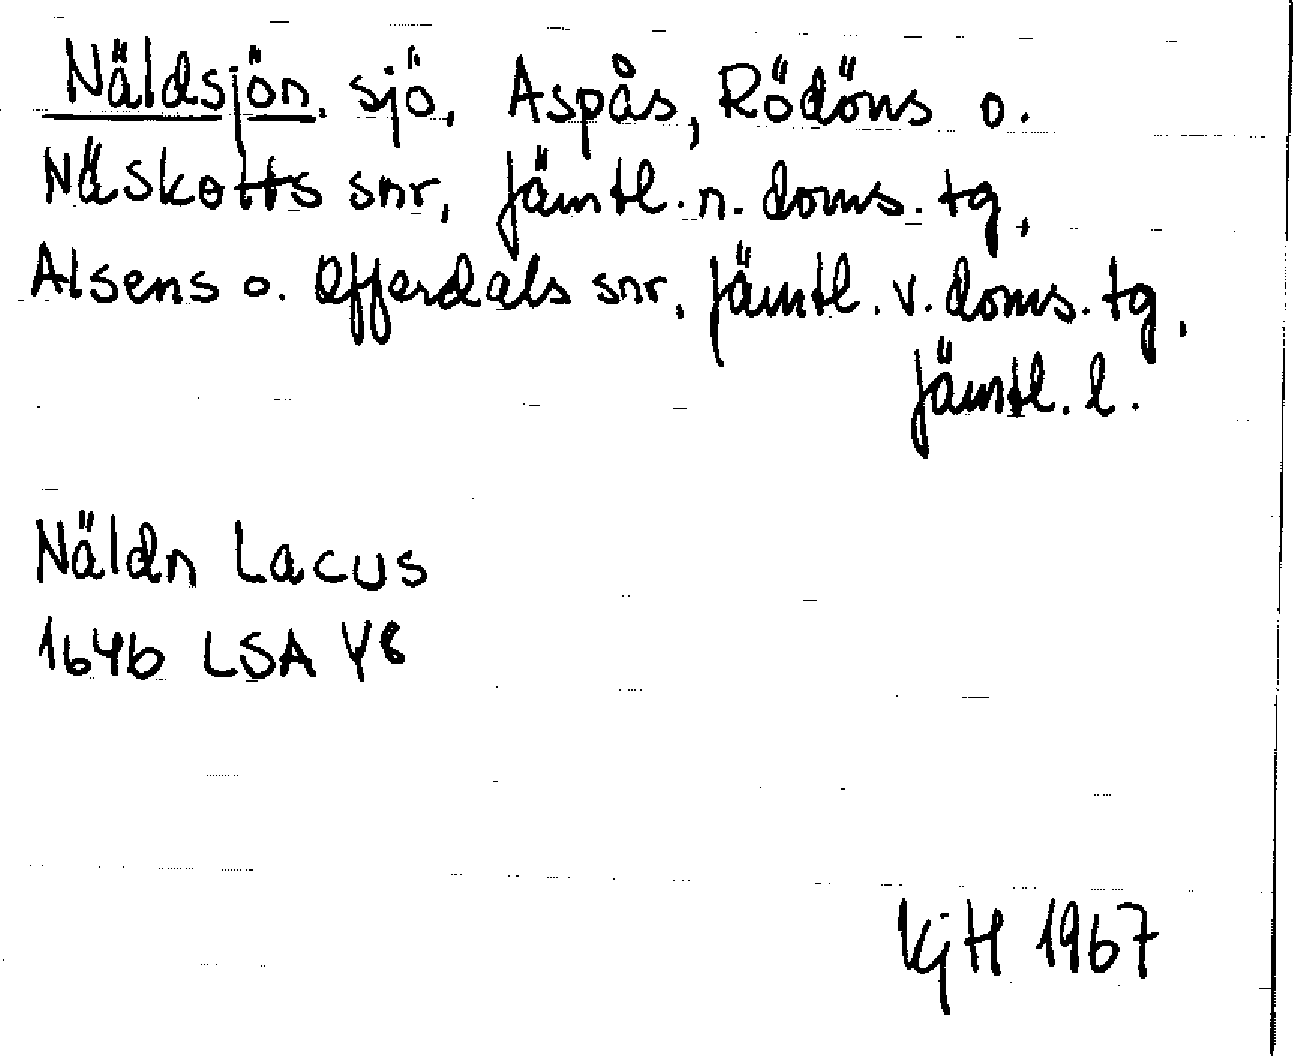 Näldsjön, sjö, Aspås, Rödöns o.
Näskotts snr, Jämtl. n. doms. tg,
Alsens o. Offerdals snr, Jämtl. v. doms. tg,
Jämtl. l.
Näldn Lacus
1646 LSA Y8
KjH 1967